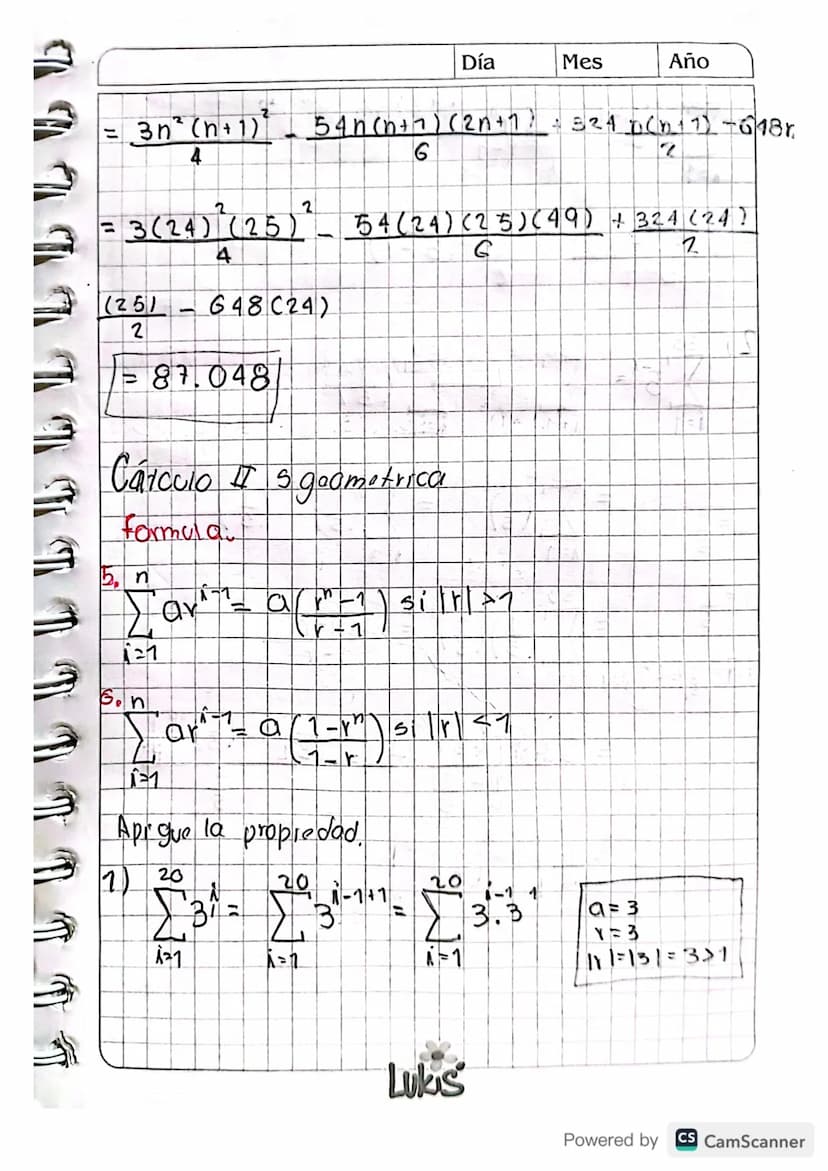 Día Mes Año
= 3n²(n+1)²/4 - 54n(n+1)(2n+1)/6 + 324 n(n+1)/2 - 648n
= 3(24)²(25)²/4 - 54(24)(25)(49)/6 + 324(24)/2
(25)/2 - 648(24)
= 87.048
Cálculo II s geometrica
formula:
5. n∑i=1 ar^i-1 = a(r^n-1/r-1) si |r|>1
6. n∑i=1 ar^i-1 = a(1-r^n/1-r) si |r|<1
Aplique la propiedad.
1) 20∑i=1 3^i = 20∑i=1 3^i-1+1 = 20∑i=1 3^i-1 . 3^1
a = 3
r = 3
|r|=|3|=3>1
Lukis
Powered by CS CamScanner